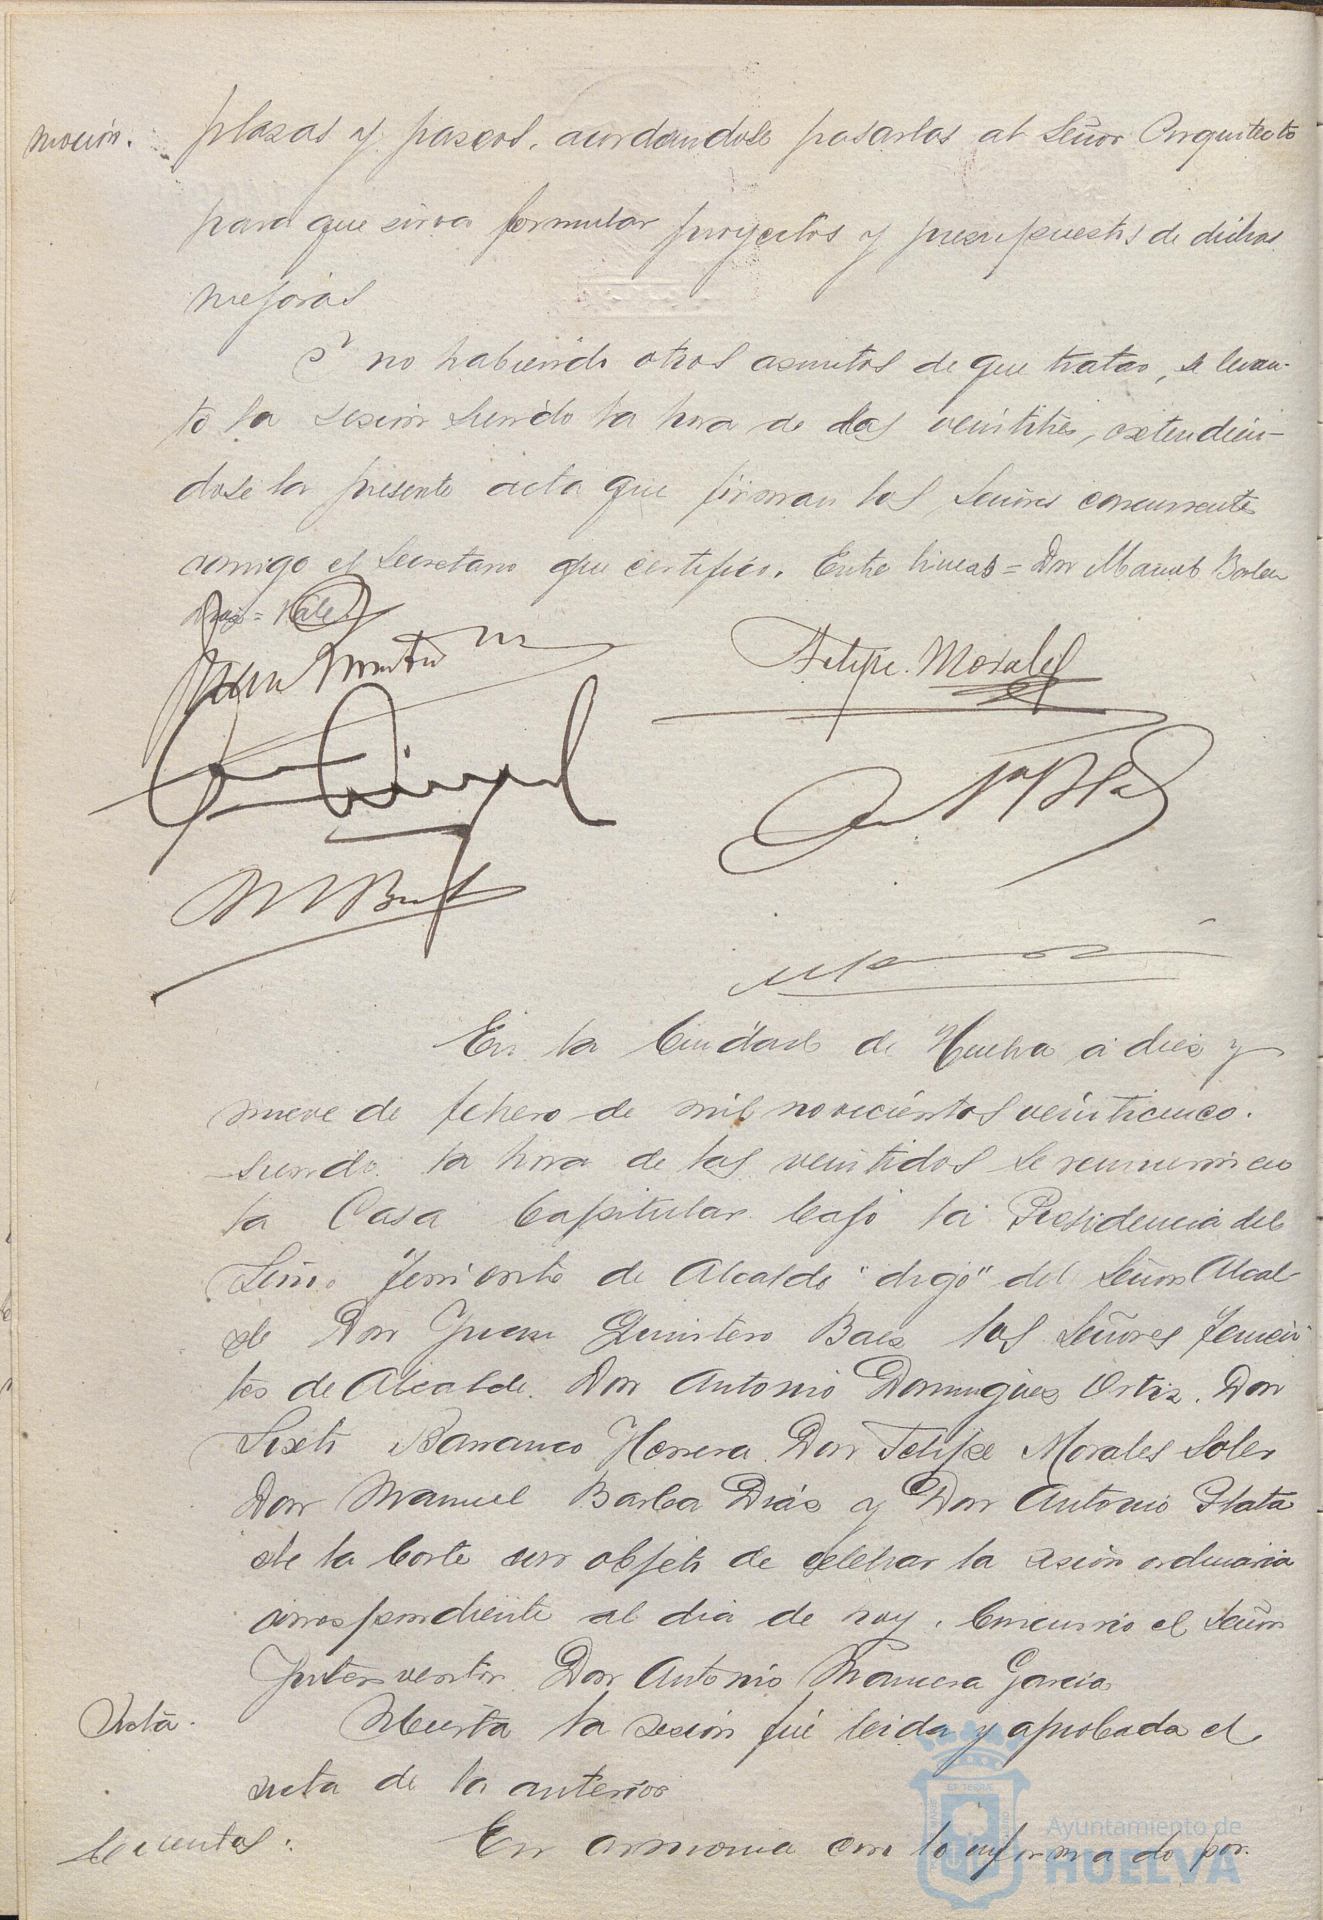 moción. plazas y paseos, acordandose pasarlas al Señor Arquitecto
para que sirva formular proyectos y presupuestos de dichas
mejoras
Y no habiendo otros asuntos de que tratar, se levan-
tó la sesión siendo la hora de las veintitres, extendién-
dose la presente acta que firman los Señores concurrentes
conmigo el Secretario que certifico. Entre lineas = Don Manuel Barba
Diaz = Vale
Felipe Morales
En la Ciudad de Huelva a diez y
nueve de febrero de mil novecientos veinticinco.
siendo la hora de las veintidos se reunieron en
la Casa Capitular bajo la Presidencia del
Señor Teniente de Alcalde "digo" del Señor Alcal-
de Don Juan Quintero Baez los Señores Tenien-
tes de Alcalde Don Antonio Dominguez Ortiz. Don
Sixto Barranco Herrera Don Felipe Morales Soler
Don Manuel Barba Diáz y Don Antonio Plata
de la Corte con objeto de celebrar la sesión ordinaria
correspondiente al dia de hoy. Concurrió el Señor
Interventor Don Antonio Garcia
Acta. Abierta la sesión fué leida y aprobada el
acta de la anterior
Cuentas: En armonia con lo informado por
Ayuntamiento de
HUELVA